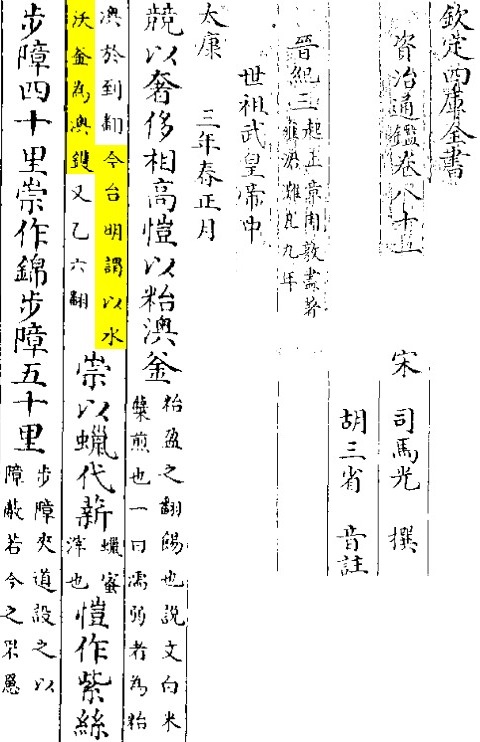 欽定四庫全書
資治通鑑卷八十
宋 司馬光 撰
胡三省 音註
晉紀三 起上章困敦盡著雍涒灘凡九年
世祖武皇帝中
太康 三年春正月
競以奢侈相高愷以𥹋澳釜 𥹋盈之翻餳也說文曰米糵煎也一曰濡弱者為𥹋
澳於到翻今台明謂以水沃釜為澳鑊又乙六翻 崇以蠟代薪 蠟蜜滓也 愷作紫絲
步障四十里崇作錦步障五十里 步障夾道設之以障蔽若今之罘罳